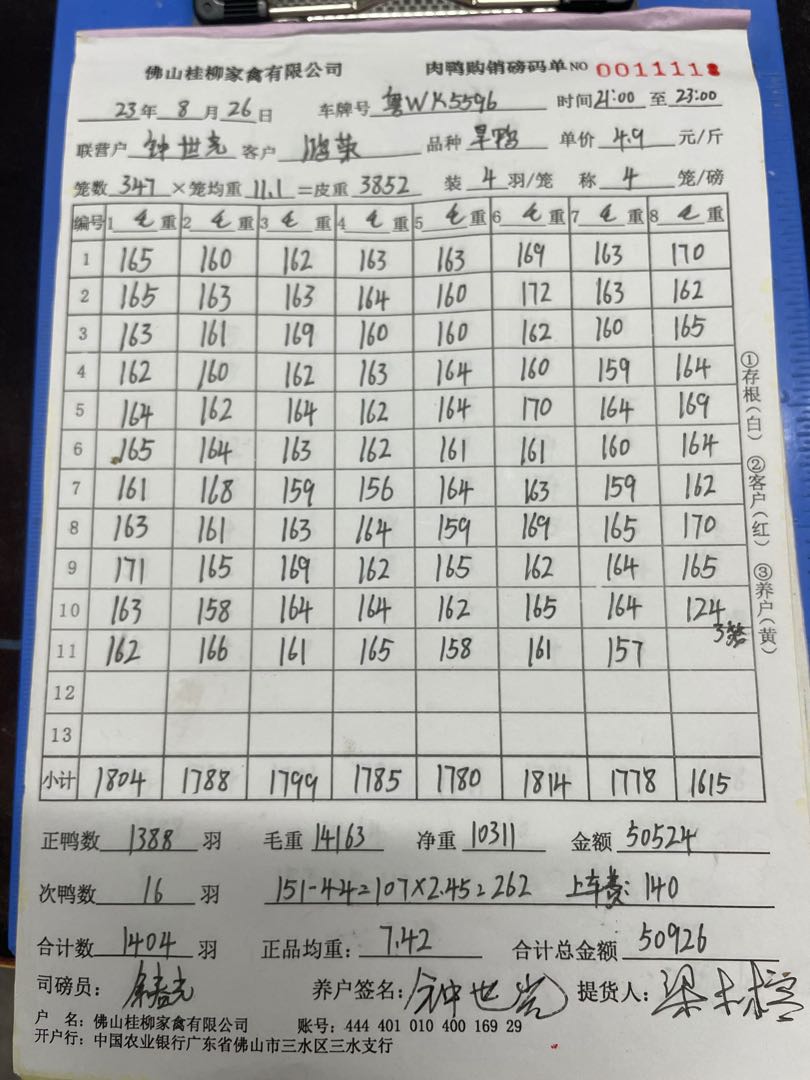 佛山桂柳家禽有限公司 肉鸭购销磅码单 NO 0011118
23年 8月26日 车牌号 粤WK5596 时间21:00至23:00
联营户 钟世亮 客户 鸿荣 品种 旱鸭 单价 4.9 元/斤
笼数 347 ×笼均重 11.1 =皮重 3852 装 4 羽/笼 称 4 笼/磅
编号 1 毛重 2 毛重 3 毛重 4 毛重 5 毛重 6 毛重 7 毛重 8 毛重
1 165 160 162 163 163 169 163 170
2 165 163 163 164 160 172 163 162
3 163 161 169 160 160 162 160 165
4 162 160 162 163 164 160 159 164
5 164 162 164 162 164 170 164 169
6 165 164 163 162 161 161 160 164
7 161 168 159 156 164 163 159 162
8 163 161 163 164 159 169 165 170
9 171 165 169 162 165 162 164 165
10 163 158 164 164 162 165 164 124
3笼
11 162 166 161 165 158 161 157
12
13
小计 1804 1788 1799 1785 1780 1814 1778 1615
①存根(白) ②客户(红) ③养户(黄)
正鸭数 1388 羽 毛重 14163 净重 10311 金额 50524
次鸭数 16 羽 151-44=107×2.45=262 上车费:140
合计数 1404 羽 正品均重: 7.42 合计总金额 50926
司磅员: 养户签名: 钟世亮 提货人:
户 名: 佛山桂柳家禽有限公司 账号: 444 401 010 400 169 29
开户行: 中国农业银行广东省佛山市三水区三水支行